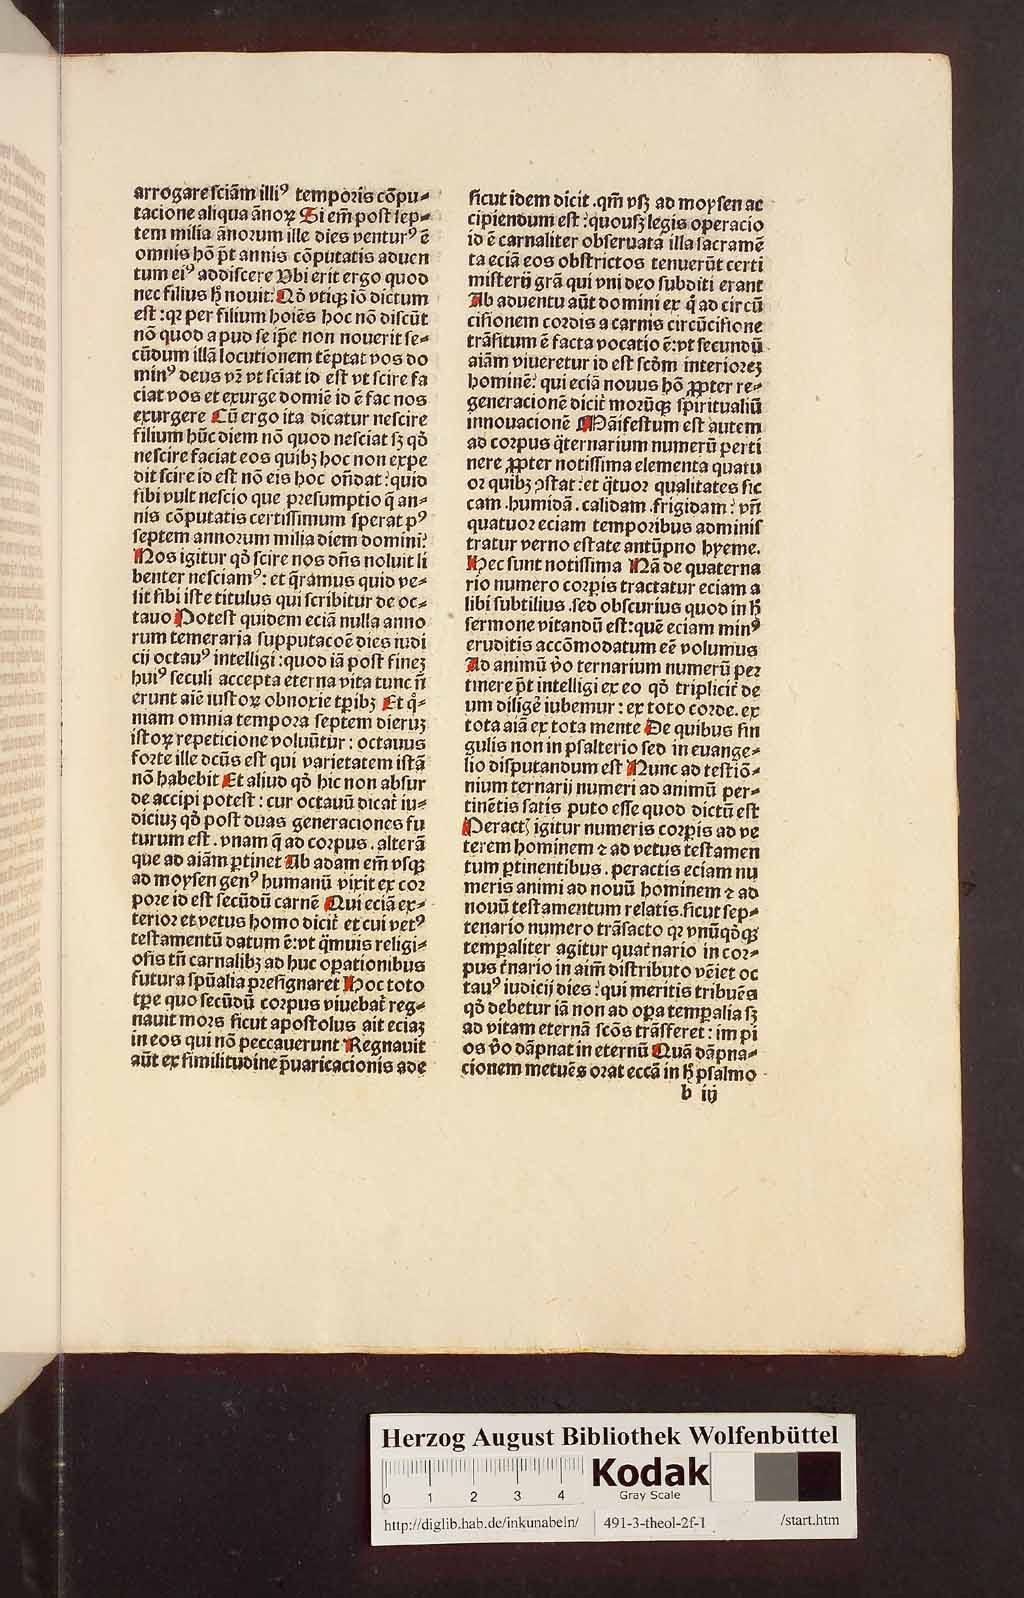 arrogare sciām illiꝰ temporis cōpu⸗
tacione aliqua ānoꝝ Si em̄ post sep⸗
tem milia ānorum ille dies venturꝰ ē
omnis hō p̄t annis cōputatis aduen
tum eiꝰ addiscere Vbi erit ergo quod
nec filius hͦ nouit: Nō vtiqꝫ iō dictum
est : qꝛ per filium hoīes hoc nō discūt
nō quod apud se ip̄e non nouerit se⸗
cūdum illā locutionem tēptat vos do
minꝰ deus vr̄ vt sciat id est vt scire fa
ciat vos et exurge domīe id ē fac nos
exurgere Cū ergo ita dicatur nescire
filium hūc diem nō quod nesciat sꝫ qd̄
nescire faciat eos quibꝫ hoc non expe
dit scire id est nō eis hoc on̄dat : quid
sibi vult nescio que presumptio q̄ an⸗
nis cōputatis certissimum sperat pꝰ
septem annorum milia diem domini?
Nos igitur qd̄ scire nos dn̄s noluit li
benter nesciamꝰ : et q̄ramus quid ve⸗
lit sibi iste titulus qui scribitur de oc⸗
tauo Potest quidem eciā nulla anno
rum temeraria supputacōe dies iudi
cij octauꝰ intelligi : quod iā post fineꝫ
huiꝰ seculi accepta eterna vita tunc n̄
erunt aīe iustoꝝ obnoxie tp̄ibꝫ Et qͦ⸗
niam omnia tempora septem dieruꝫ
istoꝝ repeticione voluūtur : octauus
forte ille dc̄us est qui varietatem istā
nō habebit Et aliud qd̄ hic non absur
de accipi potest : cur octauū dicat̄ iu⸗
diciuꝫ qd̄ post duas generaciones fu
turum est . vnam q̄ ad corpus . alterā
que ad aiām ꝑtinet Ab adam em̄ vsqꝫ
ad moysen genꝰ humanū vixit ex cor
pore id est secūdū carnē Qui eciā ex⸗
terior et vetus homo dicit̄ et cui vetꝰ
testamentū datum ē: vt q̄muis religi⸗
osis tn̄ carnalibꝫ ad huc oꝑationibus
futura spūalia presignaret Hoc toto
tp̄e quo secūdū corpus viuebat̄ reg⸗
nauit mors sicut apostolus ait eciaꝫ
in eos qui nō peccauerunt Regnauit
aūt ex similitudine p̄uaricacionis ade
sicut idem dicit . qm̄ vsꝫ ad moysen ac
cipiendum est : quousꝫ legis operacio
id ē carnaliter obseruata illa sacramē
ta eciā eos obstrictos tenuerūt certi
misterij grā qui vni deo subditi erant
Ab aduentu aūt domini ex q̄ ad circū
cisionem cordis a carnis circūcisione
trāsitum ē facta vocatio ē: vt secundū
aiām viueretur id est scd̄m interioreꝫ
hominē: qui eciā nouus hō ꝓpter re⸗
generacionē dicit̄ morūqꝫ spiritualiū
innouacionē Māifestum est autem
ad corpus q̄ternarium numerū perti
nere ꝓpter notissima elementa quatu
or quibꝫ ꝯstat : et q̄tuor qualitates sic
cam . humidā . calidam . frigidam : vn̄
quatuor eciam temporibus adminis
tratur verno estate antūpno hyeme.
Hec sunt notissima Nā de quaterna
rio numero corꝑis tractatur eciam a
libi subtilius . sed obscurius quod in hͦ
sermone vitandū est: quē eciam minꝰ
eruditis accōmodatum eē volumus
Ad animū v̄o ternarium numerū per
tinere p̄t intelligi ex eo qd̄ triplicit̄ de
um diligē iubemur : ex toto corde . ex
tota aiā ex tota mente De quibus sin
gulis non in psalterio sed in euange⸗
lio disputandum est Nunc ad testiō⸗
nium ternarij numeri ad animū per⸗
tinētis satis puto esse quod dictū est
Peractꝭ igitur numeris corꝑis ad ve
terem hominem ⁊ ad vetus testamen
tum ꝑtinentibus . peractis eciam nu
meris animi ad nouū hominem ⁊ ad
nouū testamentum relatis . sicut sep⸗
tenario numero trāsacto qꝛ vnūqd̄qꝫ
temꝑaliter agitur quat̄nario in cor⸗
pus t̄nario in aim̄ distributo vēiet oc
tauꝰ iudicij dies : qui meritis tribuēs
qd̄ debetur iā non ad oꝑa temꝑalia sꝫ
ad vitam eternā scōs trāsferet : impi
os v̄o dāpnat in eternū Quā dāpna⸗
cionem metuēs orat eccā in hͦ psalmo
b iij
Herzog August Bibliothek Wolfenbüttel
0 1 2 3 4
Kodak
Gray Scale
http://diglib.hab.de/inkunabeln/ 491-3-theol-2f-1 /start.htm